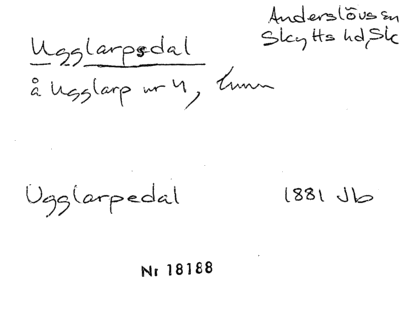 Anderslövs sn
Skytts hd, Sk
Ugglarpsdal
å Ugglarp nr 4,
Ugglarpedal 1881 Jb
Nr 18188